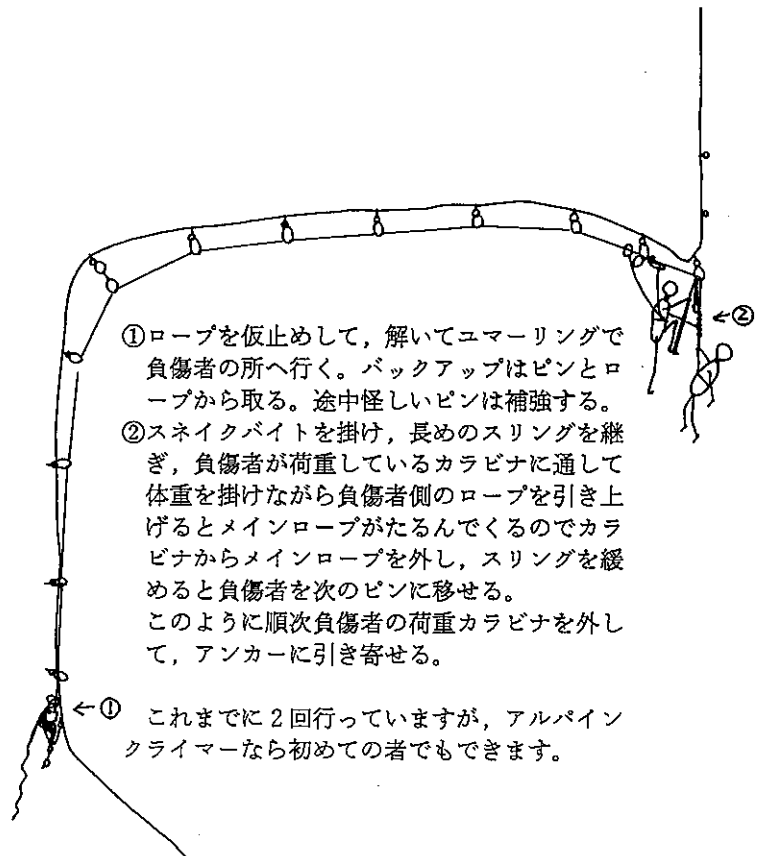 ①ロープを仮止めして，解いてユマーリングで
負傷者の所へ行く。バックアップはピンとロ
ープから取る。途中怪しいピンは補強する。
②スネイクバイトを掛け，長めのスリングを継
ぎ，負傷者が荷重しているカラビナに通して
体重を掛けながら負傷者側のロープを引き上
げるとメインロープがたるんでくるのでカラ
ビナからメインロープを外し，スリングを緩
めると負傷者を次のピンに移せる。
このように順次負傷者の荷重カラビナを外し
て，アンカーに引き寄せる。
これまでに2回行っていますが，アルパイン
クライマーなら初めての者でもできます。
←②
←①